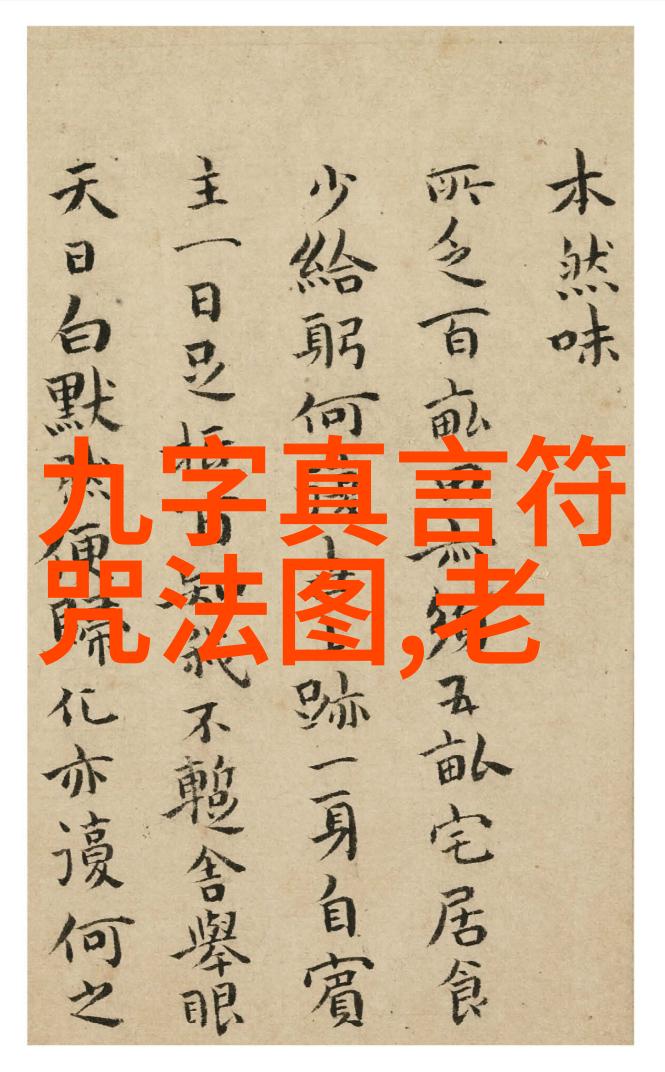 本然味
所乏百畝五畝宅居食
少給躬何跡一身自賓
主一日足不暫舍舉眼
天日白默然便歸化亦何之
九字真言符
咒法图,老